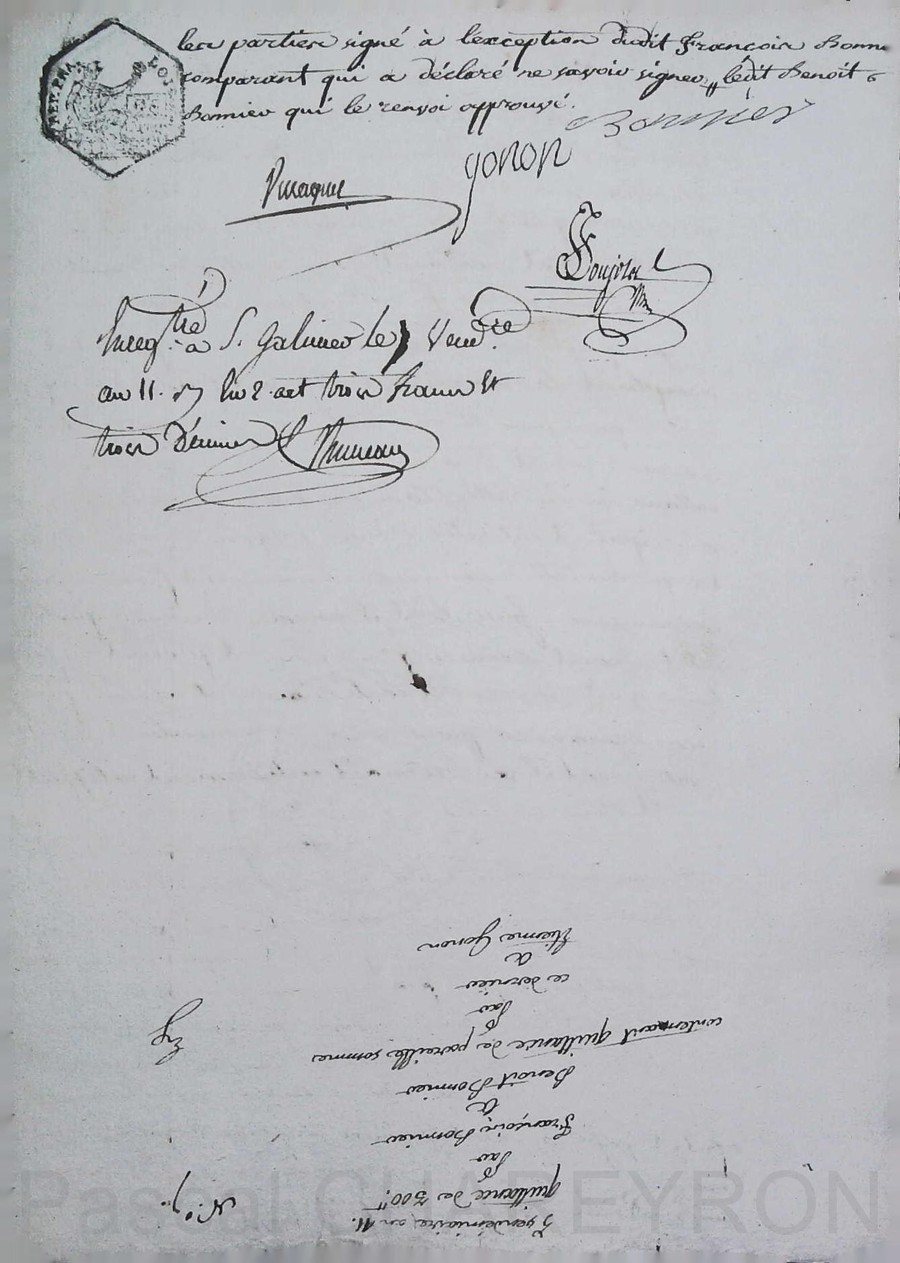 les parties signé à l'exception dudit françois Bonnie
comparant qui a déclaré ne savoir signer, ledit Benoît
Bonnier qui le renvoi approuvé.
Bonnier
gonon
Enregtré à S. Galmier le 7 Vendre
an 11. Rv 2 act trois francs et
trois Décimes
5 vendémiaire an 11.
quittance de 300tt
par
françois Bonnier
A
Benoît Bonnier
contenant quittance de pareille somme
par
ce dernier
a
Etienne Gonon
Pascal CHAREYRON